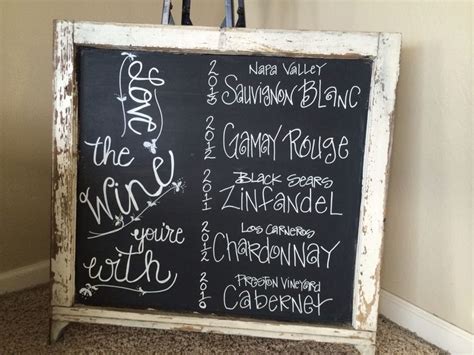 Love
the
Wine
you're
with
Napa Valley
Sauvignon Blanc
2012 Gamay Rouge
Black Sears
2011 Zinfandel
Los Carneros
2012 Chardonnay
Preston Vineyard
2010 Cabernet